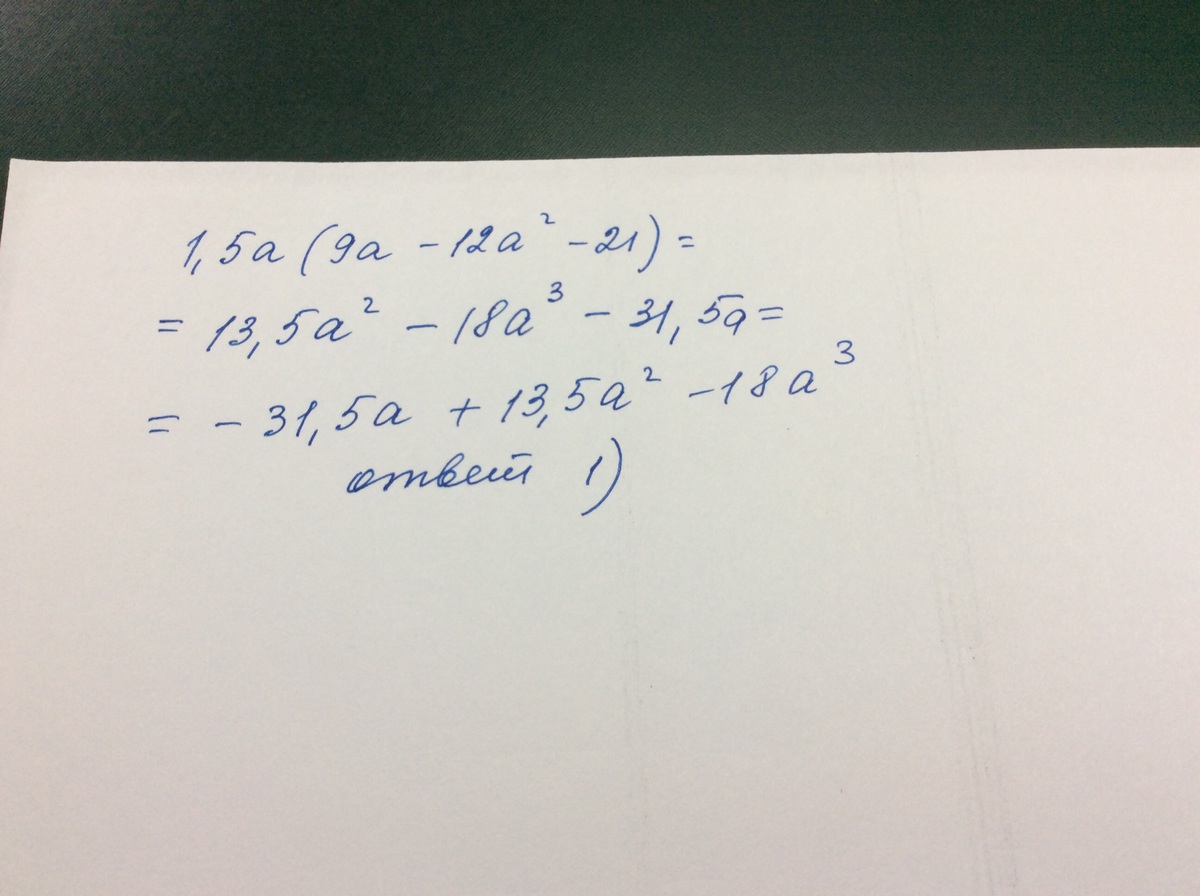 1,5a (9a - 12a² - 21) =
= 13,5a² - 18a³ - 31,5a =
= - 31,5a + 13,5a² - 18a³
ответ 1)